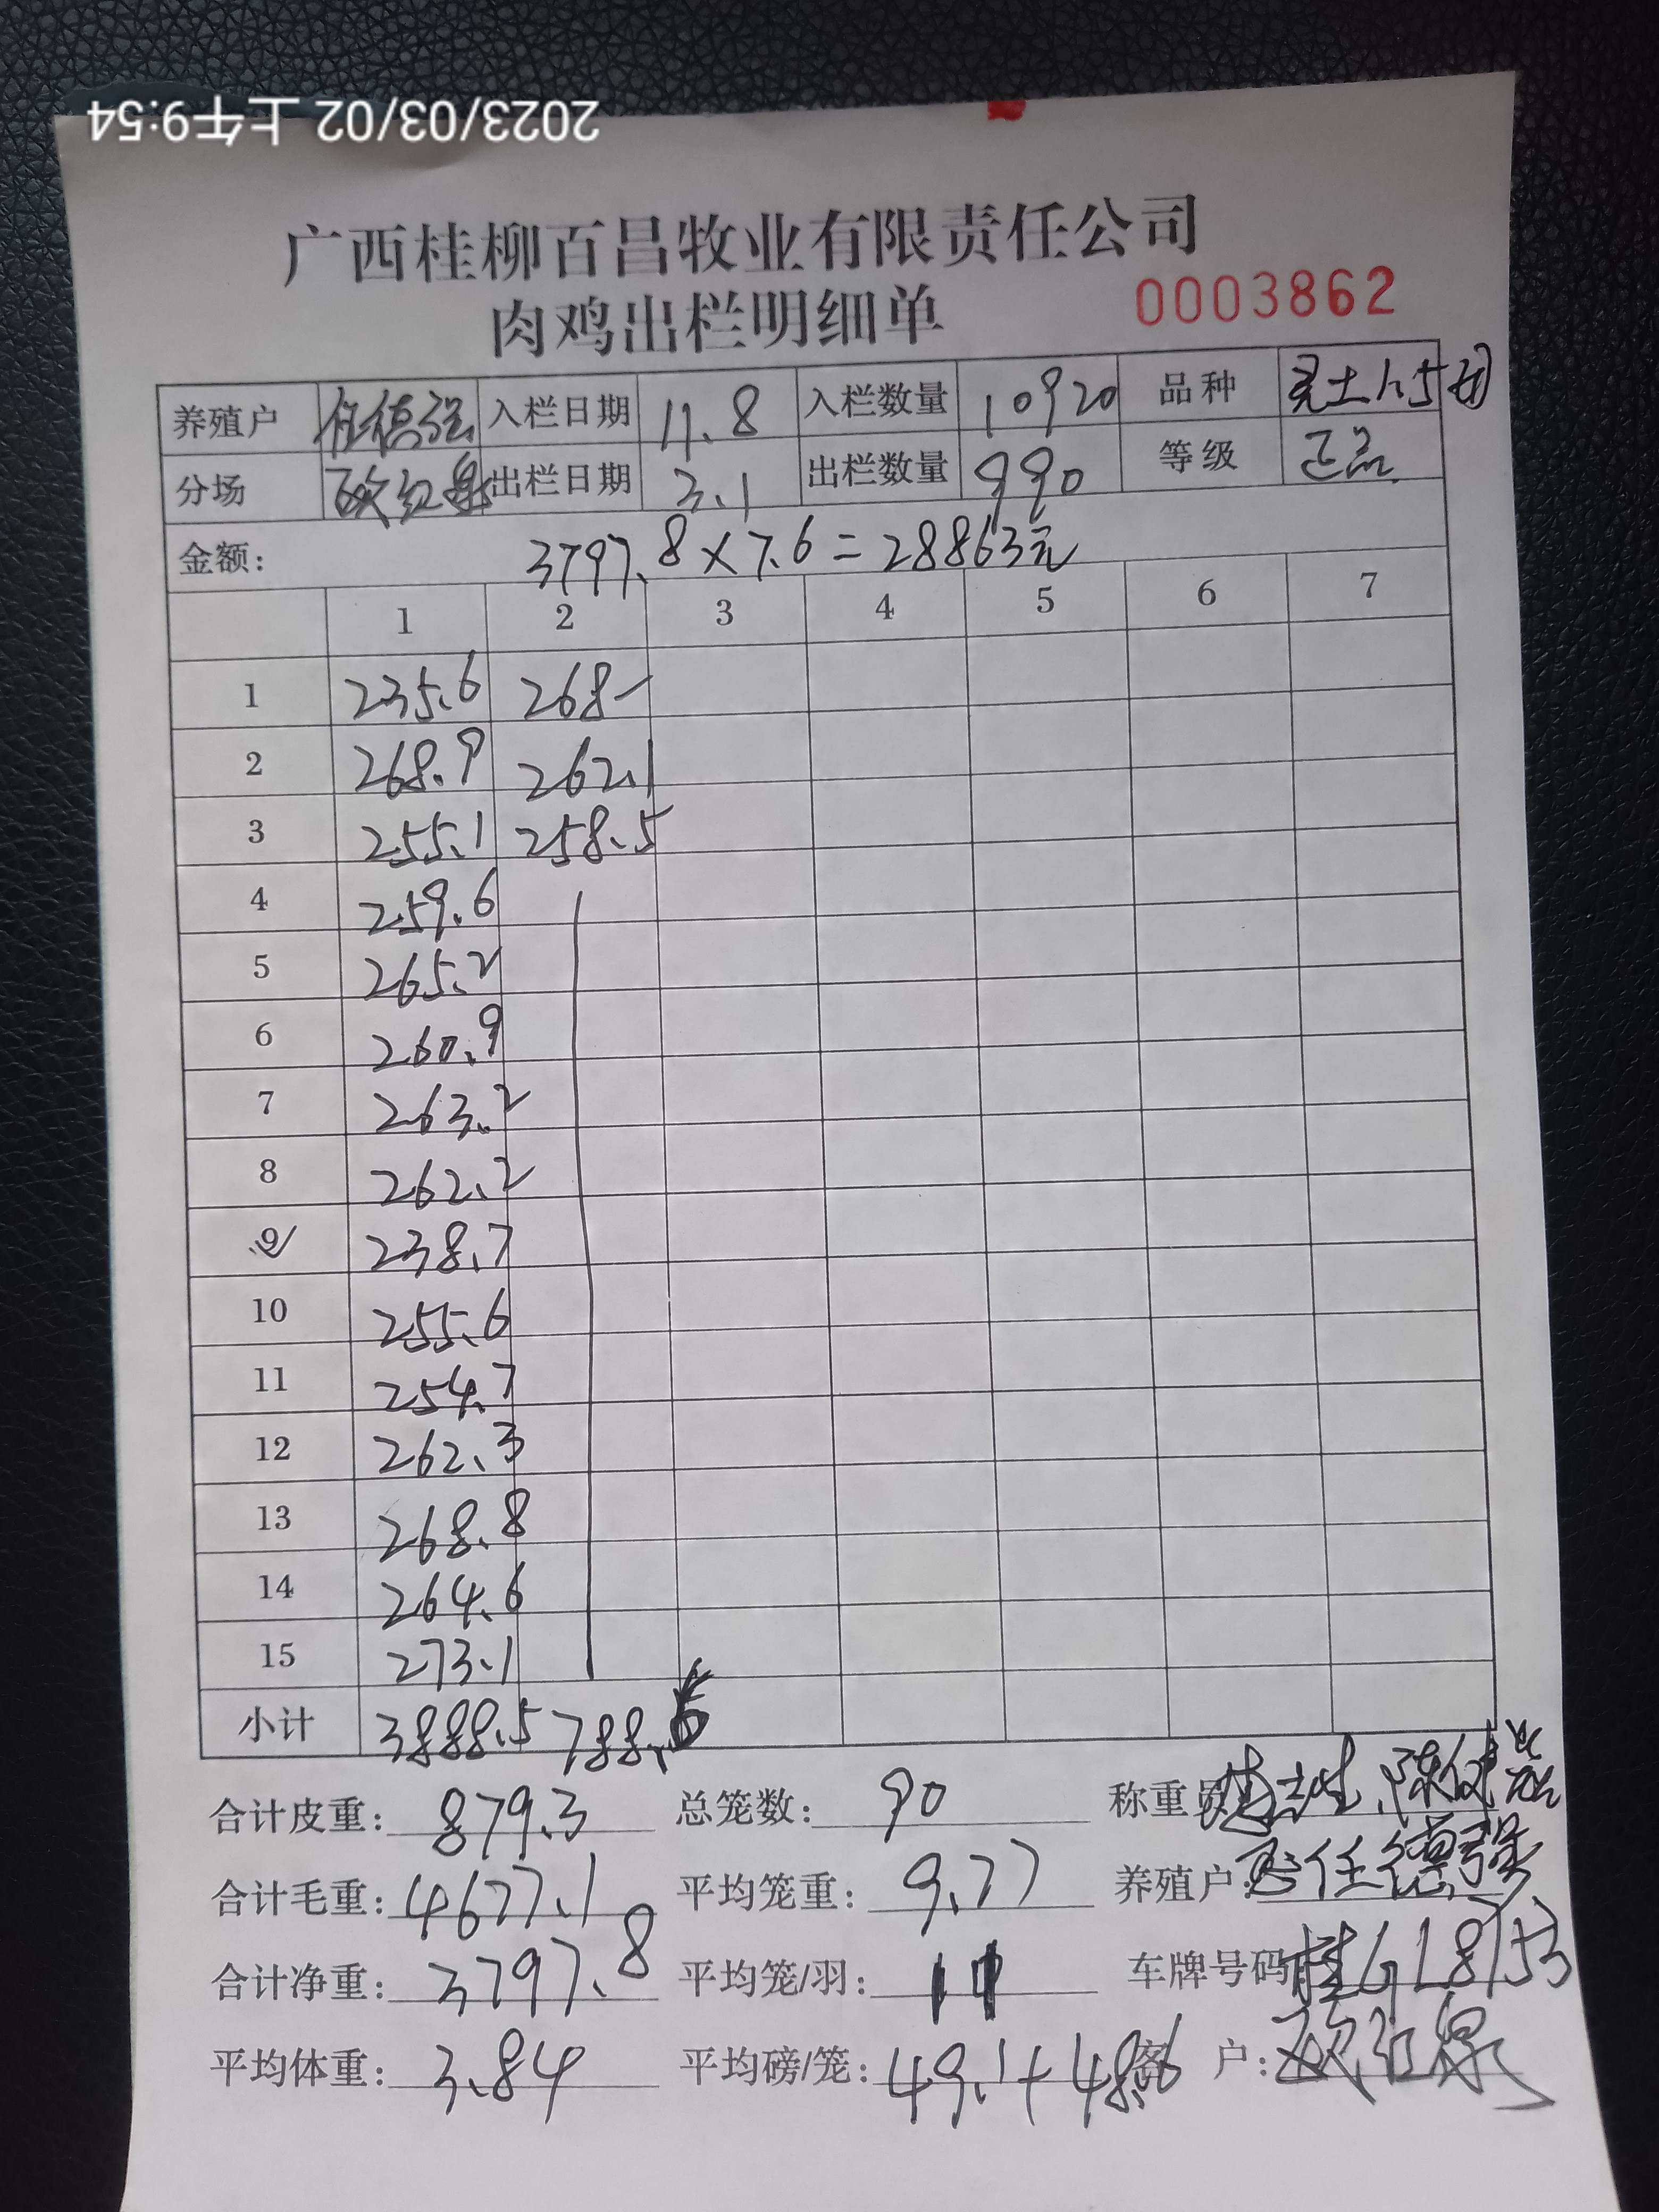 2023/03/02 上午9:54
广西桂柳百昌牧业有限责任公司
肉鸡出栏明细单 0003862
养殖户 任德强 入栏日期 11.8 入栏数量 10920 品种 土
分场 欧红泉 出栏日期 3.1 出栏数量 990 等级 正品
金额: 3797.8×7.6=28863元
1 2 3 4 5 6 7
1 235.6 268-
2 268.9 262.1
3 255.1 258.5
4 259.6
5 265.2
6 260.9
7 263.2
8 262.2
9 238.7
10 255.6
11 254.7
12 262.3
13 268.8
14 264.6
15 273.1
小计 3888.5 788.6
合计皮重: 879.3 总笼数: 90 称重员
合计毛重: 4677.1 平均笼重: 9.77 养殖户: 任德强
合计净重: 3797.8 平均笼/羽: 11 车牌号码: 桂GL8753
平均体重: 3.84 平均磅/笼: 49.1+48.6 客户: 欧红泉